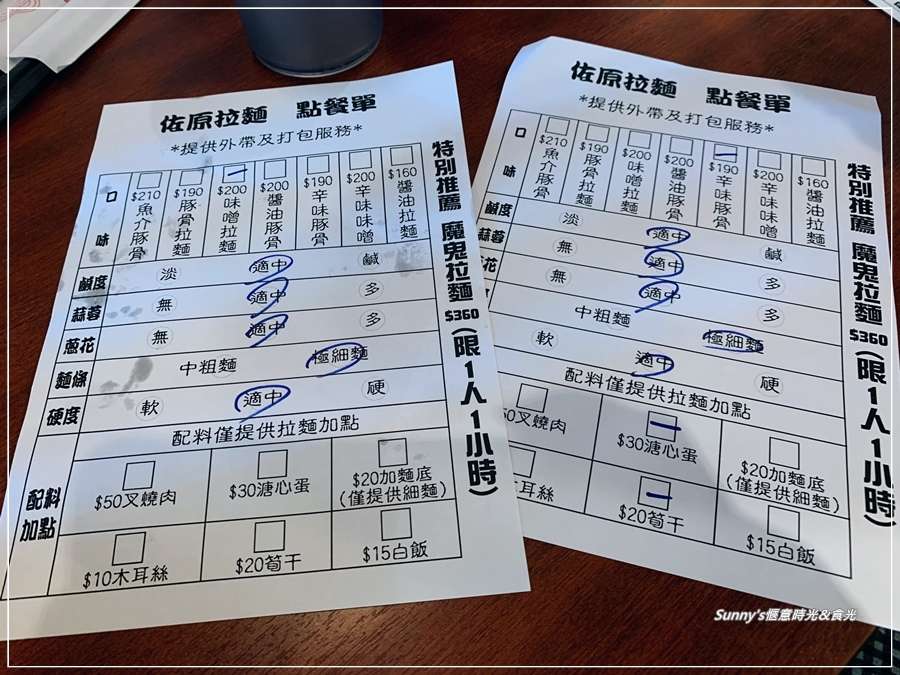 佐原拉麵 點餐單
*提供外帶及打包服務*
口味
$210魚介豚骨
$190豚骨拉麵
$200味噌拉麵
$200醬油豚骨
$190辛味豚骨
$200辛味味噌
$160醬油拉麵
鹹度 淡 適中 鹹
蒜蓉 無 適中 多
蔥花 無 適中 多
麵條 中粗麵 極細麵
硬度 軟 適中 硬
配料加點
配料僅提供拉麵加點
$50叉燒肉 $30溏心蛋 $20加麵底
(僅提供細麵)
$10木耳絲 $20筍干 $15白飯
特別推薦 魔鬼拉麵 $360 (限1人1小時)
佐原拉麵 點餐單
*提供外帶及打包服務*
口味
$210魚介豚骨
$190豚骨拉麵
$200味噌拉麵
$200醬油豚骨
$190辛味豚骨
$200辛味味噌
$160醬油拉麵
鹹度 淡 適中 鹹
蒜蓉 無 適中 多
花 無 適中 多
中粗麵 極細麵
軟 適中 硬
配料僅提供拉麵加點
50叉燒肉 $30溏心蛋 $20加麵底
(僅提供細麵)
耳絲 $20筍干 $15白飯
特別推薦 魔鬼拉麵 $360 (限1人1小時)
Sunny's愜意時光&食光